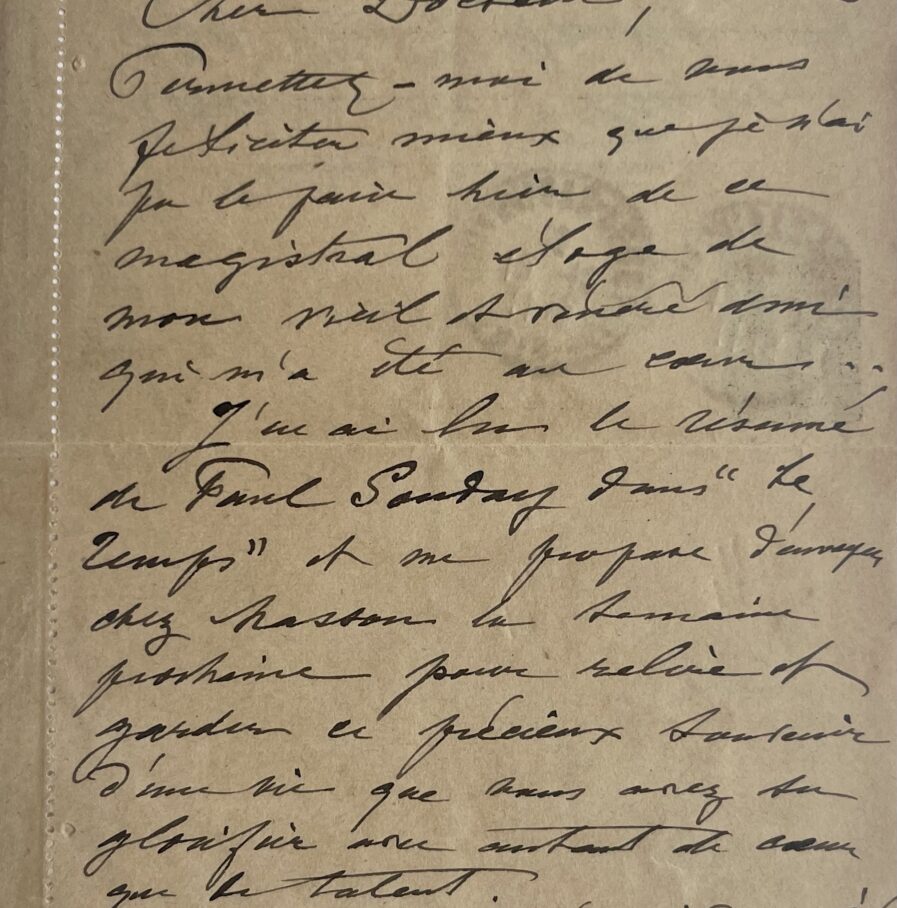 Cher Docteur,
Permettez-moi de vous
féliciter mieux que je n'ai
pu le faire hier de ce
magistral éloge de
mon vieil et vénéré ami
qui m'a été au cœur...
J'en ai lu le résumé
de Paul Souday dans "Le
Temps" et me propose d'envoyer
chez Masson la semaine
prochaine pour relire et
garder ce précieux souvenir
d'une vie que vous avez su
glorifier avec autant de cœur
que de talent.